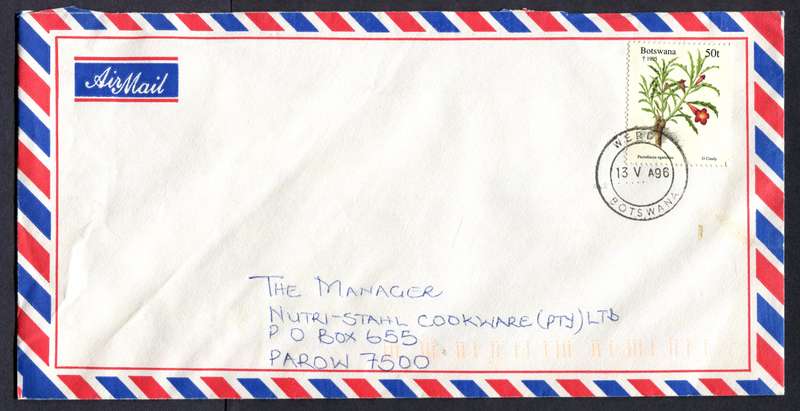 Air Mail
Botswana 50t
1995
WERDA
13 V A96
BOTSWANA
THE MANAGER
NUTRI-STAHL COOKWARE (PTY) LTD
P O BOX 655
PAROW 7500